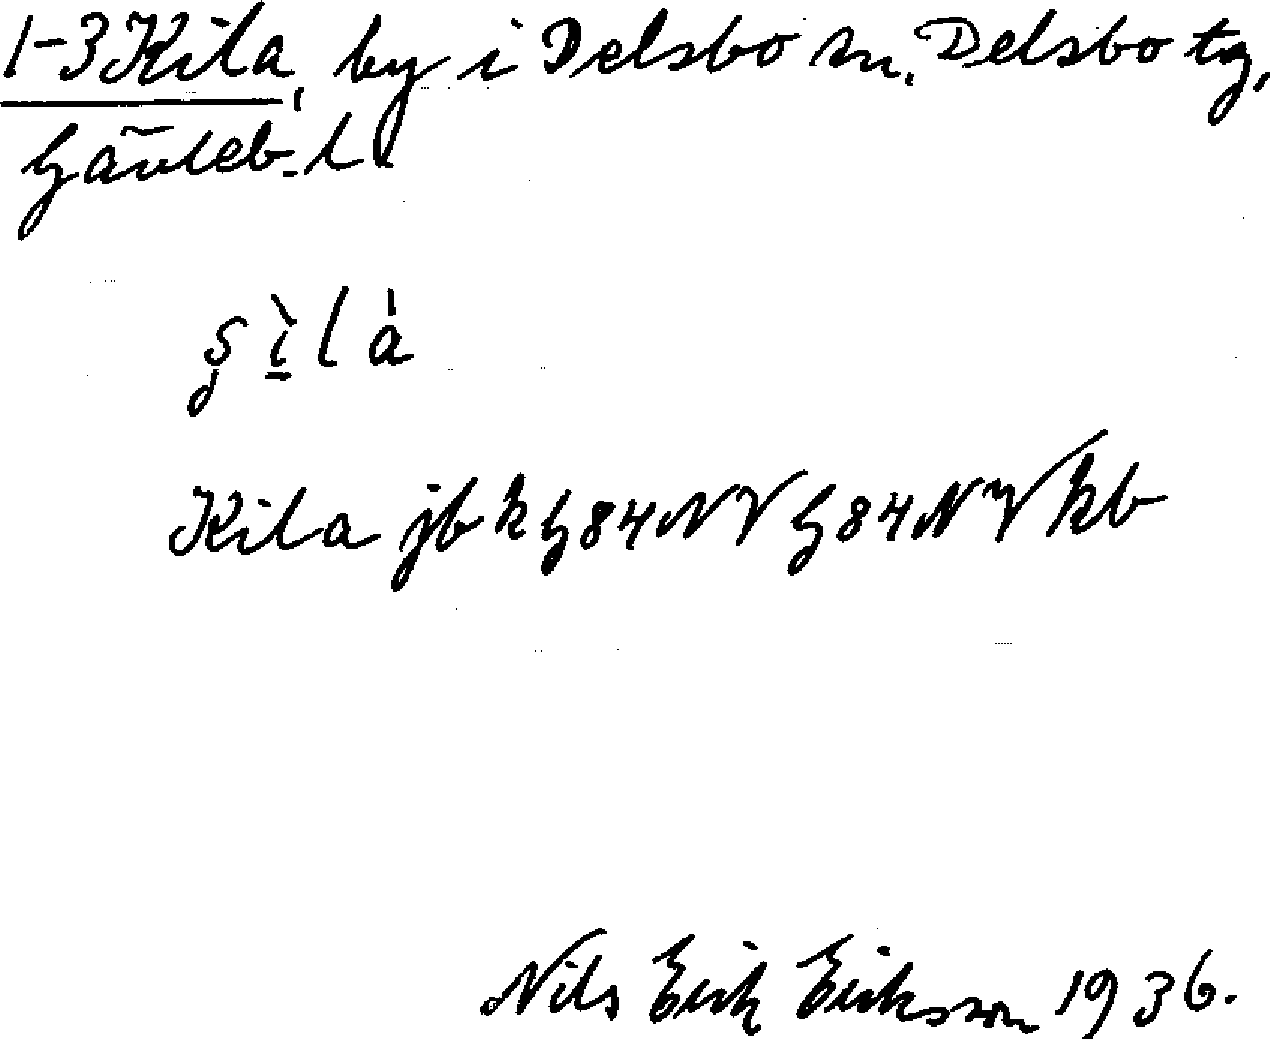 1-3 Kila, by i Delsbo sn, Delsbo tg,
Gävleb. l.
Kila jbk h84NV h84NV kb
Nils Erik Eriksson 1936.